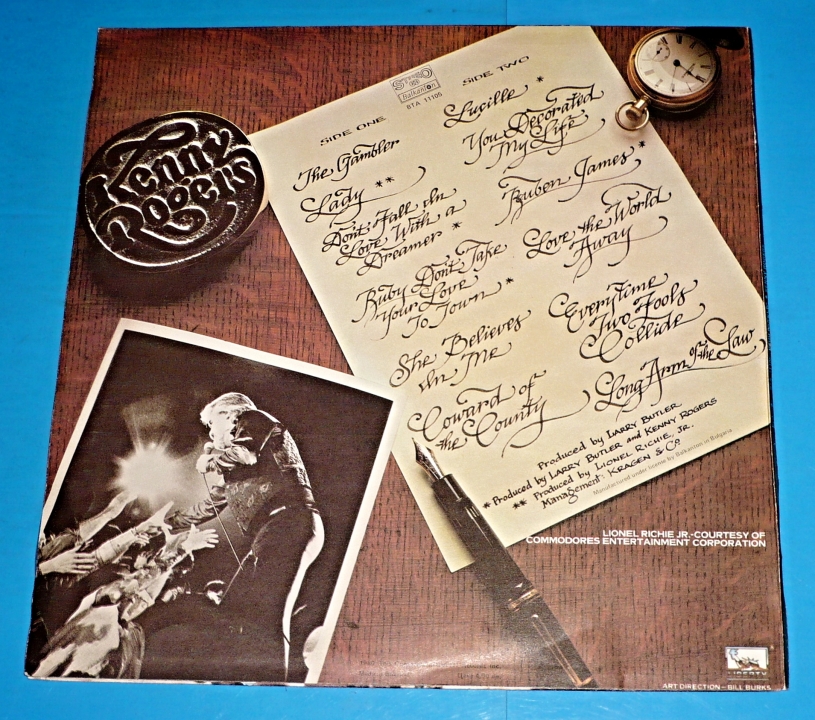 Kenny
Rogers
STEREO
Balkanton
BTA 11105
SIDE ONE
The Gambler
Lady **
Don't Fall In
Love With a
Dreamer *
Ruby Don't Take
Your Love
To Town *
She Believes
In Me
Coward of
the County
SIDE TWO
Lucille *
You Decorated
My Life
Ruben James *
Love the World
Away
Everytime
Two Fools
Collide
Long Arm of the Law
Produced by LARRY BUTLER
* Produced by LARRY BUTLER and KENNY ROGERS
** Produced by LIONEL RICHIE, JR.
Management: KRAGEN & CO.
Manufactured under license by Balkanton in Bulgaria
LIONEL RICHIE JR.-COURTESY OF
COMMODORES ENTERTAINMENT CORPORATION
LIBERTY
ART DIRECTION - BILL BURKS